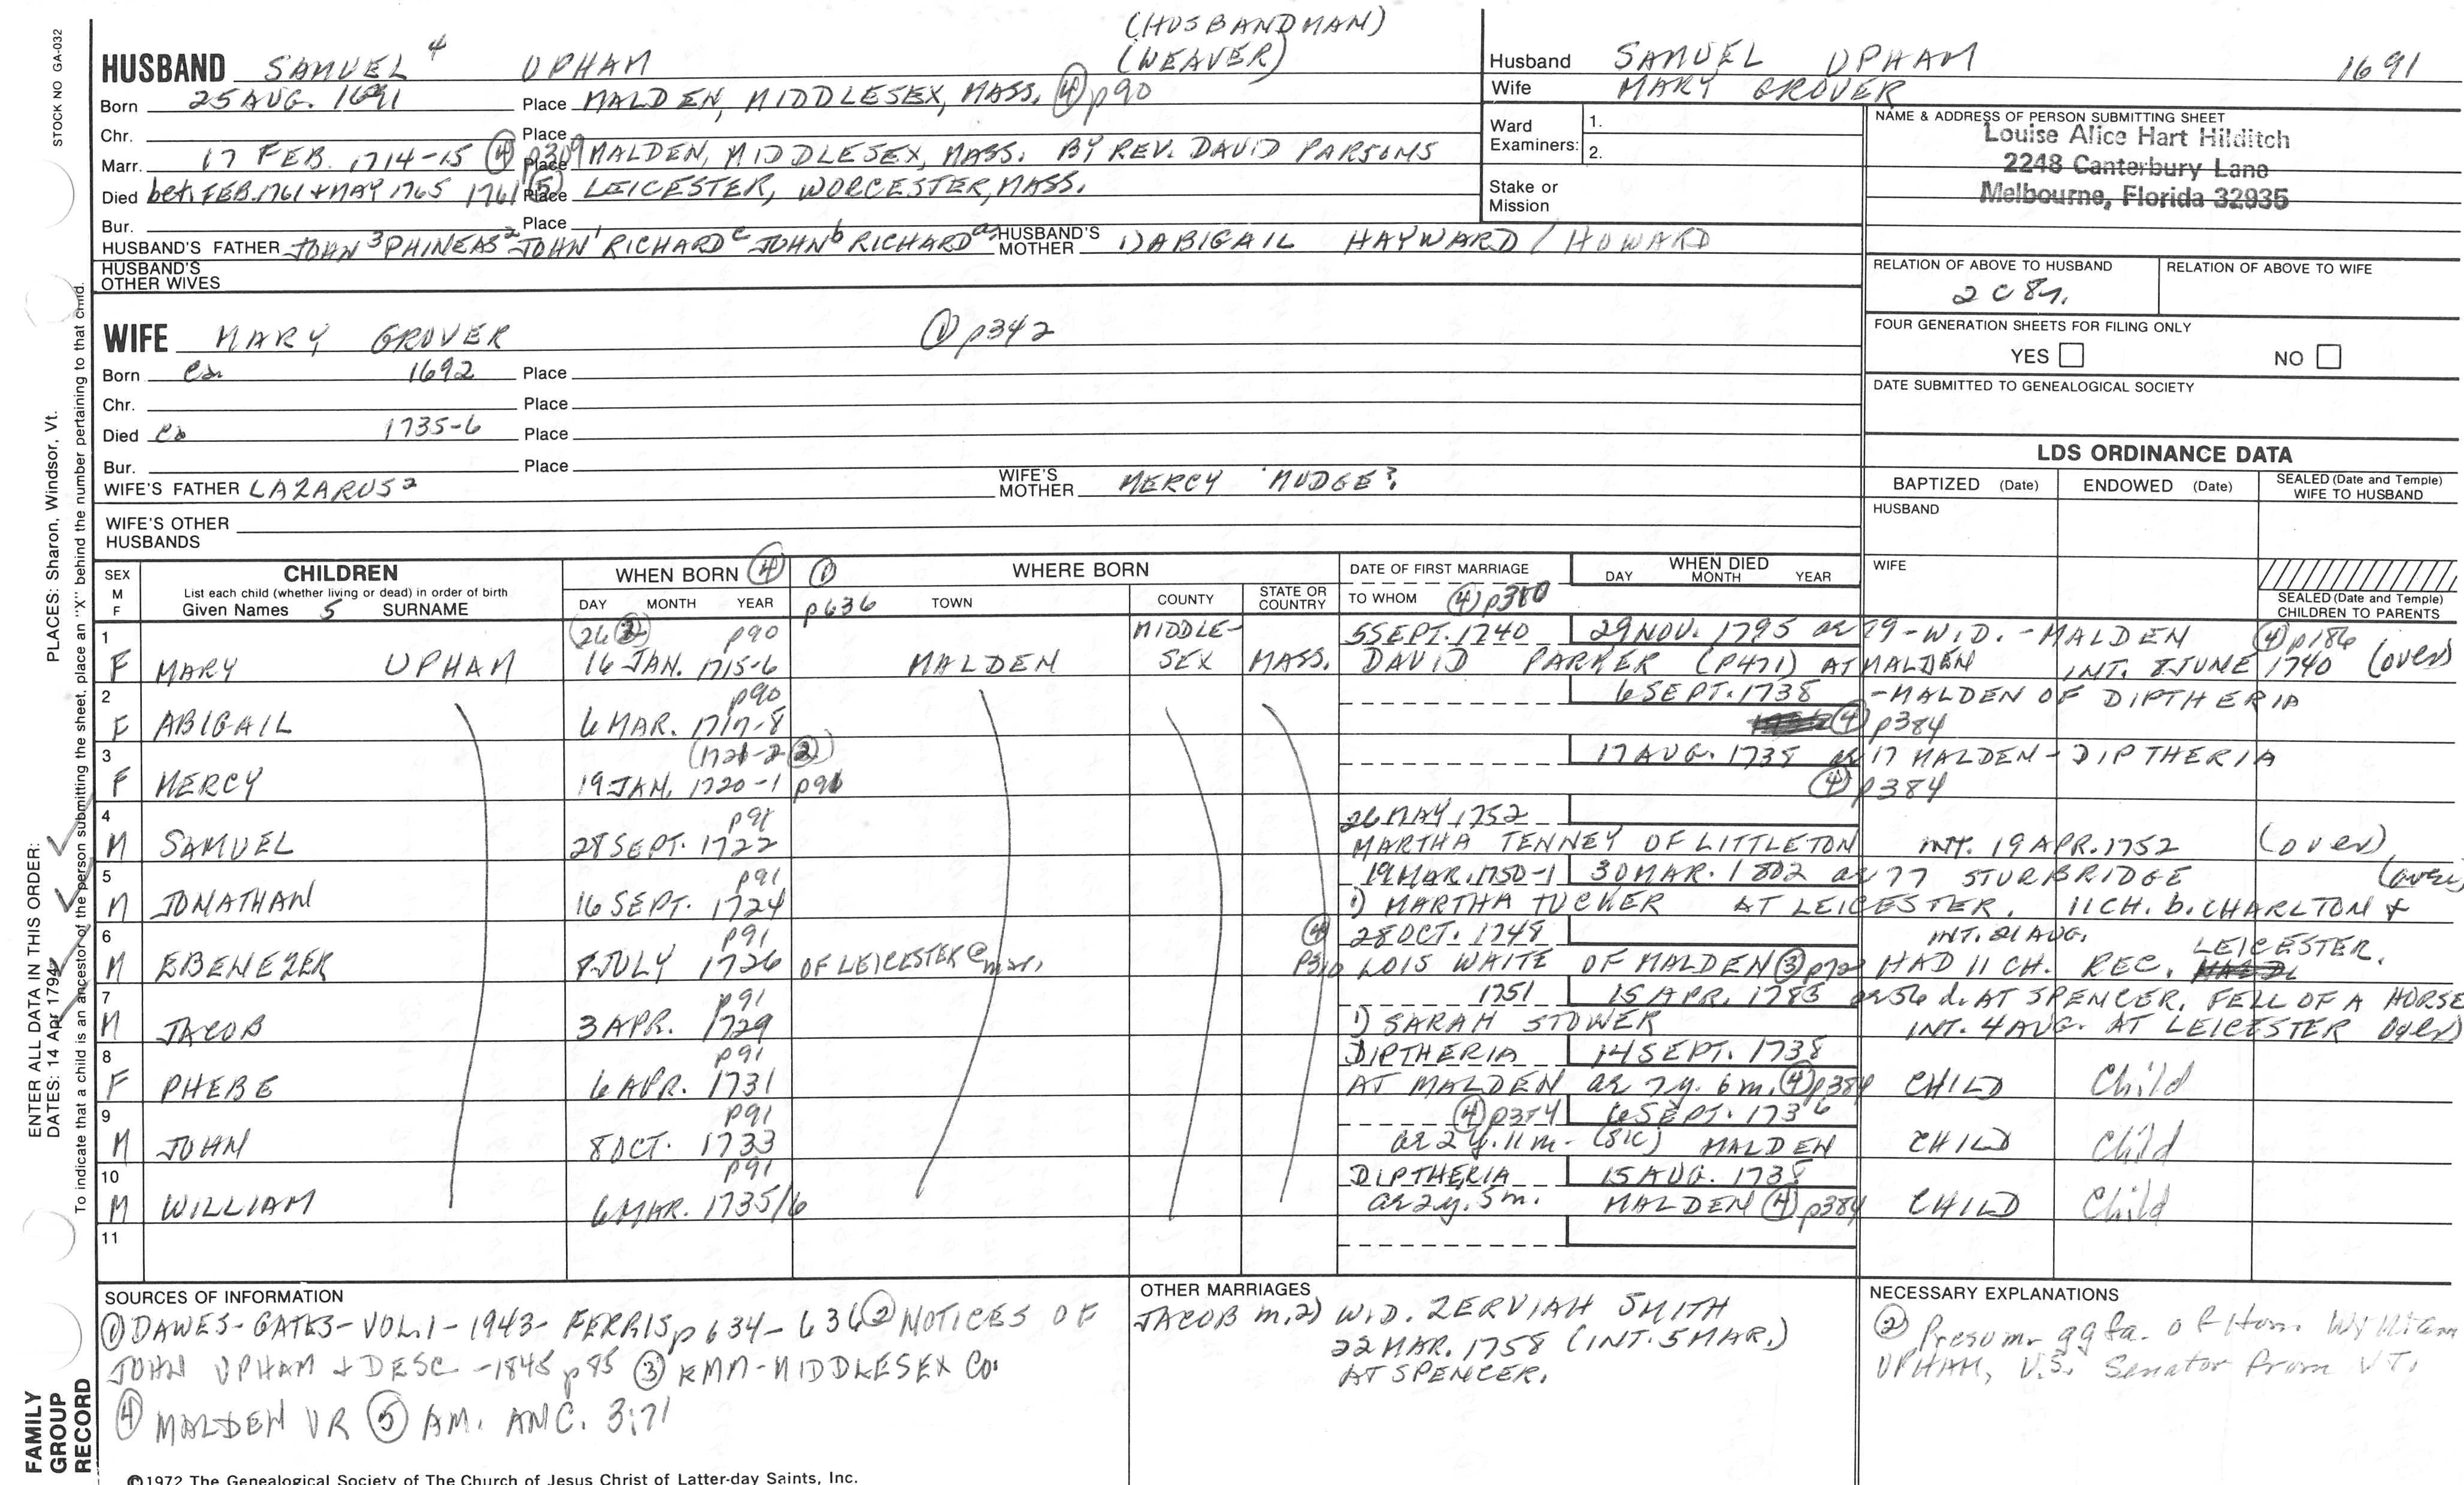 STOCK NO GA-032
PLACES: Sharon, Windsor, Vt.
ENTER ALL DATA IN THIS ORDER:
DATES: 14 Apr 1794
To indicate that a child is an ancestor of the person submitting the sheet, place an "X" behind the number pertaining to that child.
FAMILY
GROUP
RECORD
(HUSBANDMAN)
(WEAVER)
HUSBAND SAMUEL 4 UPHAM
Born 25 AUG. 1691 Place MALDEN, MIDDLESEX, MASS. ④ p90
Chr. Place
Marr. 17 FEB. 1714-15 ④ p309 Place MALDEN, MIDDLESEX, MASS. BY REV. DAVID PARSONS
Died bet. FEB. 1761 + MAY 1765 1761 ⑤ Place LEICESTER, WORCESTER, MASS.
Bur. Place
HUSBAND'S FATHER JOHN 3 PHINEAS 2 JOHN 1 RICHARD c JOHN b RICHARD a HUSBAND'S MOTHER 1) ABIGAIL HAYWARD / HOWARD
HUSBAND'S
OTHER WIVES
WIFE MARY GROVER ① p342
Born ca 1692 Place
Chr. Place
Died ca 1735-6 Place
Bur. Place
WIFE'S FATHER LAZARUS 2 WIFE'S MOTHER MERCY 'MUDGE?
WIFE'S OTHER
HUSBANDS
Husband SAMUEL UPHAM 1691
Wife MARY GROVER
Ward
Examiners:
1.
2.
Stake or
Mission
NAME & ADDRESS OF PERSON SUBMITTING SHEET
Louise Alice Hart Hilditch
2248 Canterbury Lane
Melbourne, Florida 32935
RELATION OF ABOVE TO HUSBAND RELATION OF ABOVE TO WIFE
2 C 8r.
FOUR GENERATION SHEETS FOR FILING ONLY
YES NO
DATE SUBMITTED TO GENEALOGICAL SOCIETY
LDS ORDINANCE DATA
BAPTIZED (Date) ENDOWED (Date) SEALED (Date and Temple)
WIFE TO HUSBAND
HUSBAND
WIFE
SEALED (Date and Temple)
CHILDREN TO PARENTS
SEX
M
F
CHILDREN
List each child (whether living or dead) in order of birth
Given Names 5 SURNAME
WHEN BORN ④
DAY MONTH YEAR
① p636
WHERE BORN
TOWN COUNTY STATE OR COUNTRY
DATE OF FIRST MARRIAGE
TO WHOM ④ p380
WHEN DIED
DAY MONTH YEAR
1 (26 ②) p90 MIDDLE- 5 SEPT. 1740 29 NOV. 1795 ae 79 - WID. - MALDEN ④ p186
F MARY UPHAM 16 JAN. 1715-6 MALDEN SEX MASS. DAVID PARKER (P471) AT MALDEN INT. 8 JUNE 1740 (over)
2 p90 6 SEPT. 1738 - MALDEN OF DIPTHERIA
F ABIGAIL 6 MAR. 1717-8 ④ p384
3 (1721-2 ②) 17 AUG. 1738 ae 17 MALDEN - DIPTHERIA
F MERCY 19 JAN. 1720-1 p91 ④ p384
4 p91 26 MAY 1752
M SAMUEL 28 SEPT. 1722 MARTHA TENNEY OF LITTLETON INT. 19 APR. 1752 (over)
5 p91 19 MAR. 1750-1 30 MAR. 1802 ae 77 STURBRIDGE (over)
M JONATHAN 16 SEPT. 1724 1) MARTHA TUCKER AT LEICESTER. 11 CH. b. CHARLTON +
6 p91 ④ 28 OCT. 1748 INT. 21 AUG. LEICESTER.
M EBENEZER 8 JULY 1726 OF LEICESTER @ mar. p310 LOIS WAITE OF MALDEN ③ p72 HAD 11 CH. REC.
7 p91 1751 15 APR. 1783 ae 56 d. AT SPENCER. FELL OF A HORSE
M JACOB 3 APR. 1729 1) SARAH STOWER INT. 4 AUG. AT LEICESTER (over)
8 p91 DIPTHERIA 14 SEPT. 1738
F PHEBE 6 APR. 1731 AT MALDEN ae 7y. 6 m. ④ p384 CHILD Child
9 p91 ④ p384 6 SEPT. 1736
M JOHN 8 OCT. 1733 ae 2 y. 11 m. (SIC) MALDEN CHILD Child
10 p91 DIPTHERIA 15 AUG. 1738
M WILLIAM 6 MAR. 1735/6 ae 2 y. 5 m. MALDEN ④ p384 CHILD Child
11
SOURCES OF INFORMATION
① DAWES-GATES-VOL. 1-1943- FERRIS p 634-636 ② NOTICES OF
JOHN UPHAM + DESC -1845 p 85 ③ RMM-MIDDLESEX CO.
④ MALDEN VR ⑤ AM. ANC. 3:71
OTHER MARRIAGES
JACOB m. 2) WID. ZERVIAH SMITH
22 MAR. 1758 (INT. 5 MAR.)
AT SPENCER.
NECESSARY EXPLANATIONS
② Presum. ggfa. of Hon. William
UPHAM, U.S. Senator from VT.
©1972 The Genealogical Society of The Church of Jesus Christ of Latter-day Saints, Inc.